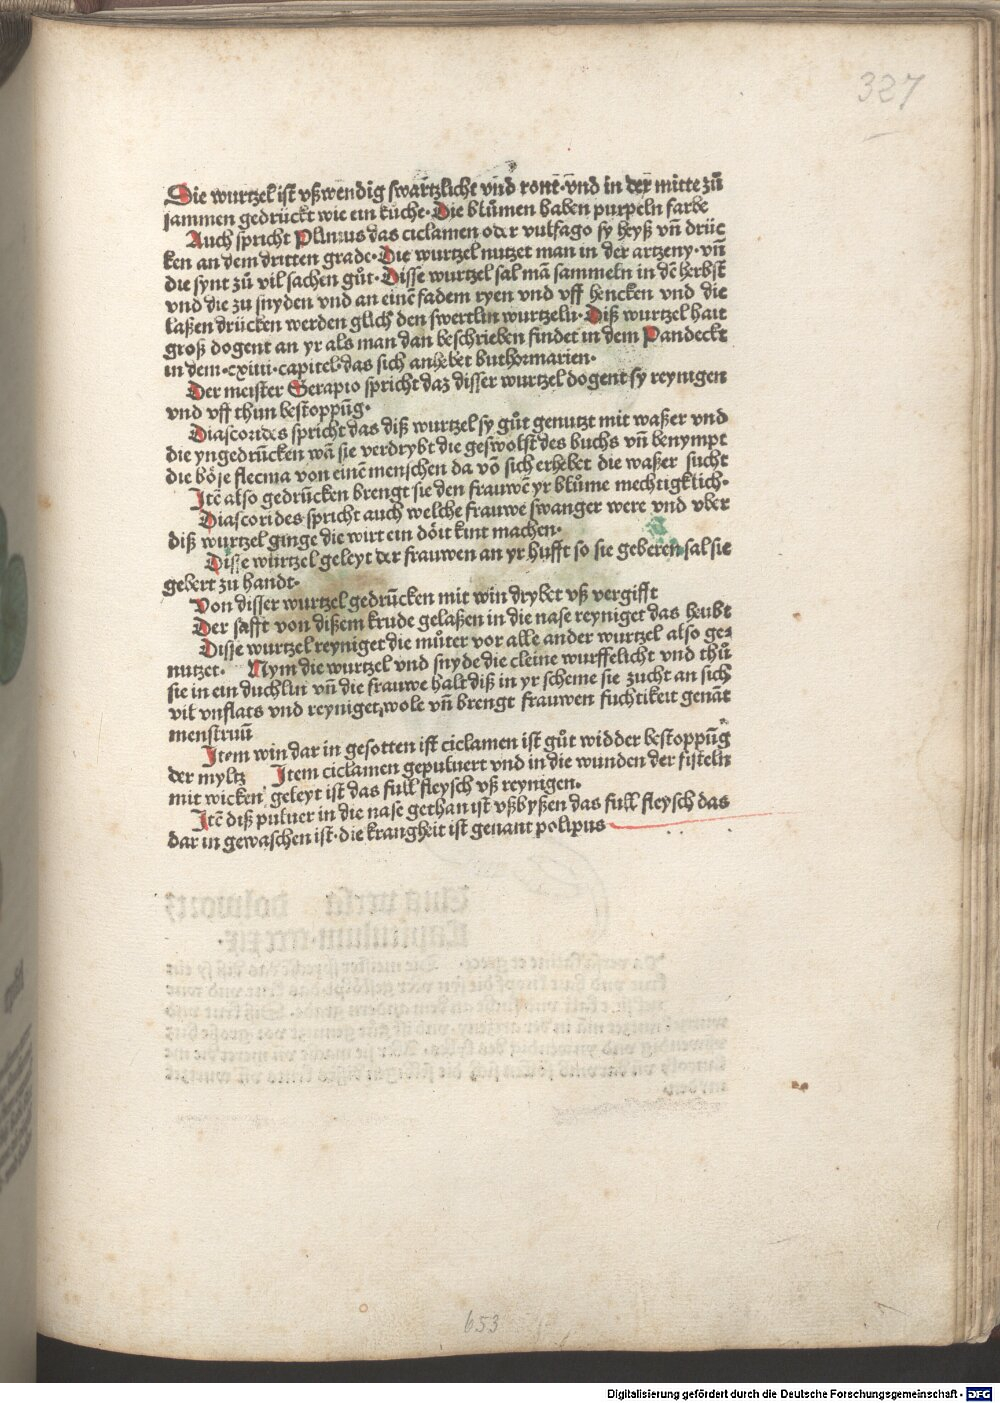 327
Die wurtzel ist vßwendig swartzlicht vnd ront·vnd in der mitte zů
sammen gedruckt wie ein kůche·Die blůmen haben purpeln farbe
Auch spricht Plinius das ciclamen oder vulfago sy heyß vñ drůc
ken an dem dritten grade·Die wurtzel nutzet man in der artzeny·vñ
die synt zů vil sachen gůt·Disse wurtzel sal mã sammeln in dẽ herbst
vnd die zu snyden vnd an einẽ fadem ryen vnd vff hencken vnd die
laßen drůcken werden glich den swertlin wurtzeln·Diß wurtzel hait
groß dogent an yr als man dan beschrieben findet in dem Pandeckt
in dem·cxiiii·capitel·das sich anhebet buthormarien·
Der meister Serapio spricht daz disser wurtzel dogent sy reynigen
vnd vff thun bestoppũg·
Diascorides spricht das diß wurtzel sy gůt genutzt mit waßer vnd
die yngedrůcken wã sie verdrybt die geswolst des buchs vñ benympt
die bőse flecma von einẽ menschen da võ sich erhebet die waßer sucht
Itẽ also gedrůcken brengt sie den frauwẽ yr blůme mechtigklich·
Diascorides spricht auch welche frauwe swanger were vnd vber
diß wurtzel ginge die wirt ein dőit kint machen·
Disse wurtzel geleyt der frauwen an yr hufft so sie geberen sal sie
gebert zu handt·
Von disser wurtzel gedrůcken mit win drybet vß vergifft
Der safft von dißem krude gelaßen in die nase reyniget das heubt
Disse wurtzel reyniget die můter vor alle ander wurtzel also ge⸗
nutzet· Nym die wurtzel vnd snyde die cleine wurffelicht vnd thů
sie in ein duchlin vñ die frauwe halt diß in yr scheme sie zucht an sich
vil vnflats vnd reyniget wole vñ brengt frauwen fuchtikeit genãt
menstruũ
Item win dar in gesotten ist ciclamen ist gůt widder bestoppũg
der myltz Item ciclamen gepuluert vnd in die wunden der fisteln
mit wicken geleyt ist das full fleysch vß reynigen·
Itẽ diß puluer in die nase gethan ist vßbyßen das full fleysch das
dar in gewaschen ist·die krangheit ist genant polipus
653
Digitalisierung gefördert durch die Deutsche Forschungsgemeinschaft - DFG